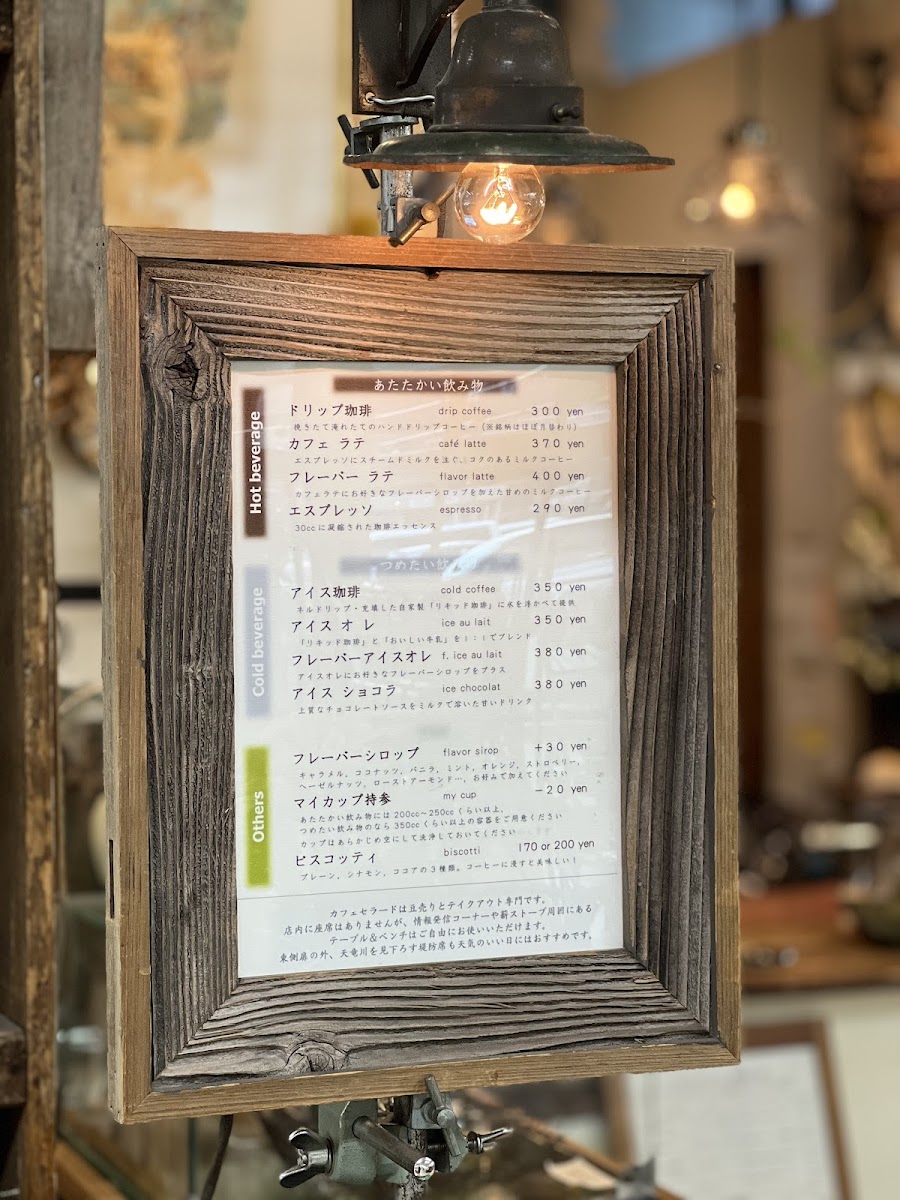 あたたかい飲み物
Hot beverage
ドリップ珈琲 drip coffee 300 yen
挽きたて淹れたてのハンドドリップコーヒー（※銘柄はほぼ月替わり）
カフェ ラテ café latte 370 yen
エスプレッソにスチームドミルクを注ぐ、コクのあるミルクコーヒー
フレーバー ラテ flavor latte 400 yen
カフェラテにお好きなフレーバーシロップを加えた甘めのミルクコーヒー
エスプレッソ espresso 290 yen
30ccに凝縮された珈琲エッセンス
つめたい飲み物
Cold beverage
アイス珈琲 cold coffee 350 yen
ネルドリップ・充填した自家製「リキッド珈琲」に氷を浮かべて提供
アイス オ レ ice au lait 350 yen
「リキッド珈琲」と「おいしい牛乳」を1：1でブレンド
フレーバーアイスオレ f. ice au lait 380 yen
アイスオレにお好きなフレーバーシロップをプラス
アイス ショコラ ice chocolat 380 yen
上質なチョコレートソースをミルクで溶いた甘いドリンク
Others
フレーバーシロップ flavor sirop +30 yen
キャラメル、ココナッツ、バニラ、ミント、オレンジ、ストロベリー、
ヘーゼルナッツ、ローストアーモンド…、お好みで加えてください
マイカップ持参 my cup −20 yen
あたたかい飲み物には200cc～250ccくらい以上、
つめたい飲み物のなら350ccくらい以上の容器をご用意ください
カップはあらかじめ空にして洗浄しておいてください
ビスコッティ biscotti 170 or 200 yen
プレーン、シナモン、ココアの3種類。コーヒーに浸すと美味しい！
カフェセラードは豆売りとテイクアウト専門です。
店内に座席はありませんが、情報発信コーナーや薪ストーブ周囲にある
テーブル＆ベンチはご自由にお使いいただけます。
東側扉の外、天竜川を見下ろす堤防席も天気のいい日にはおすすめです。